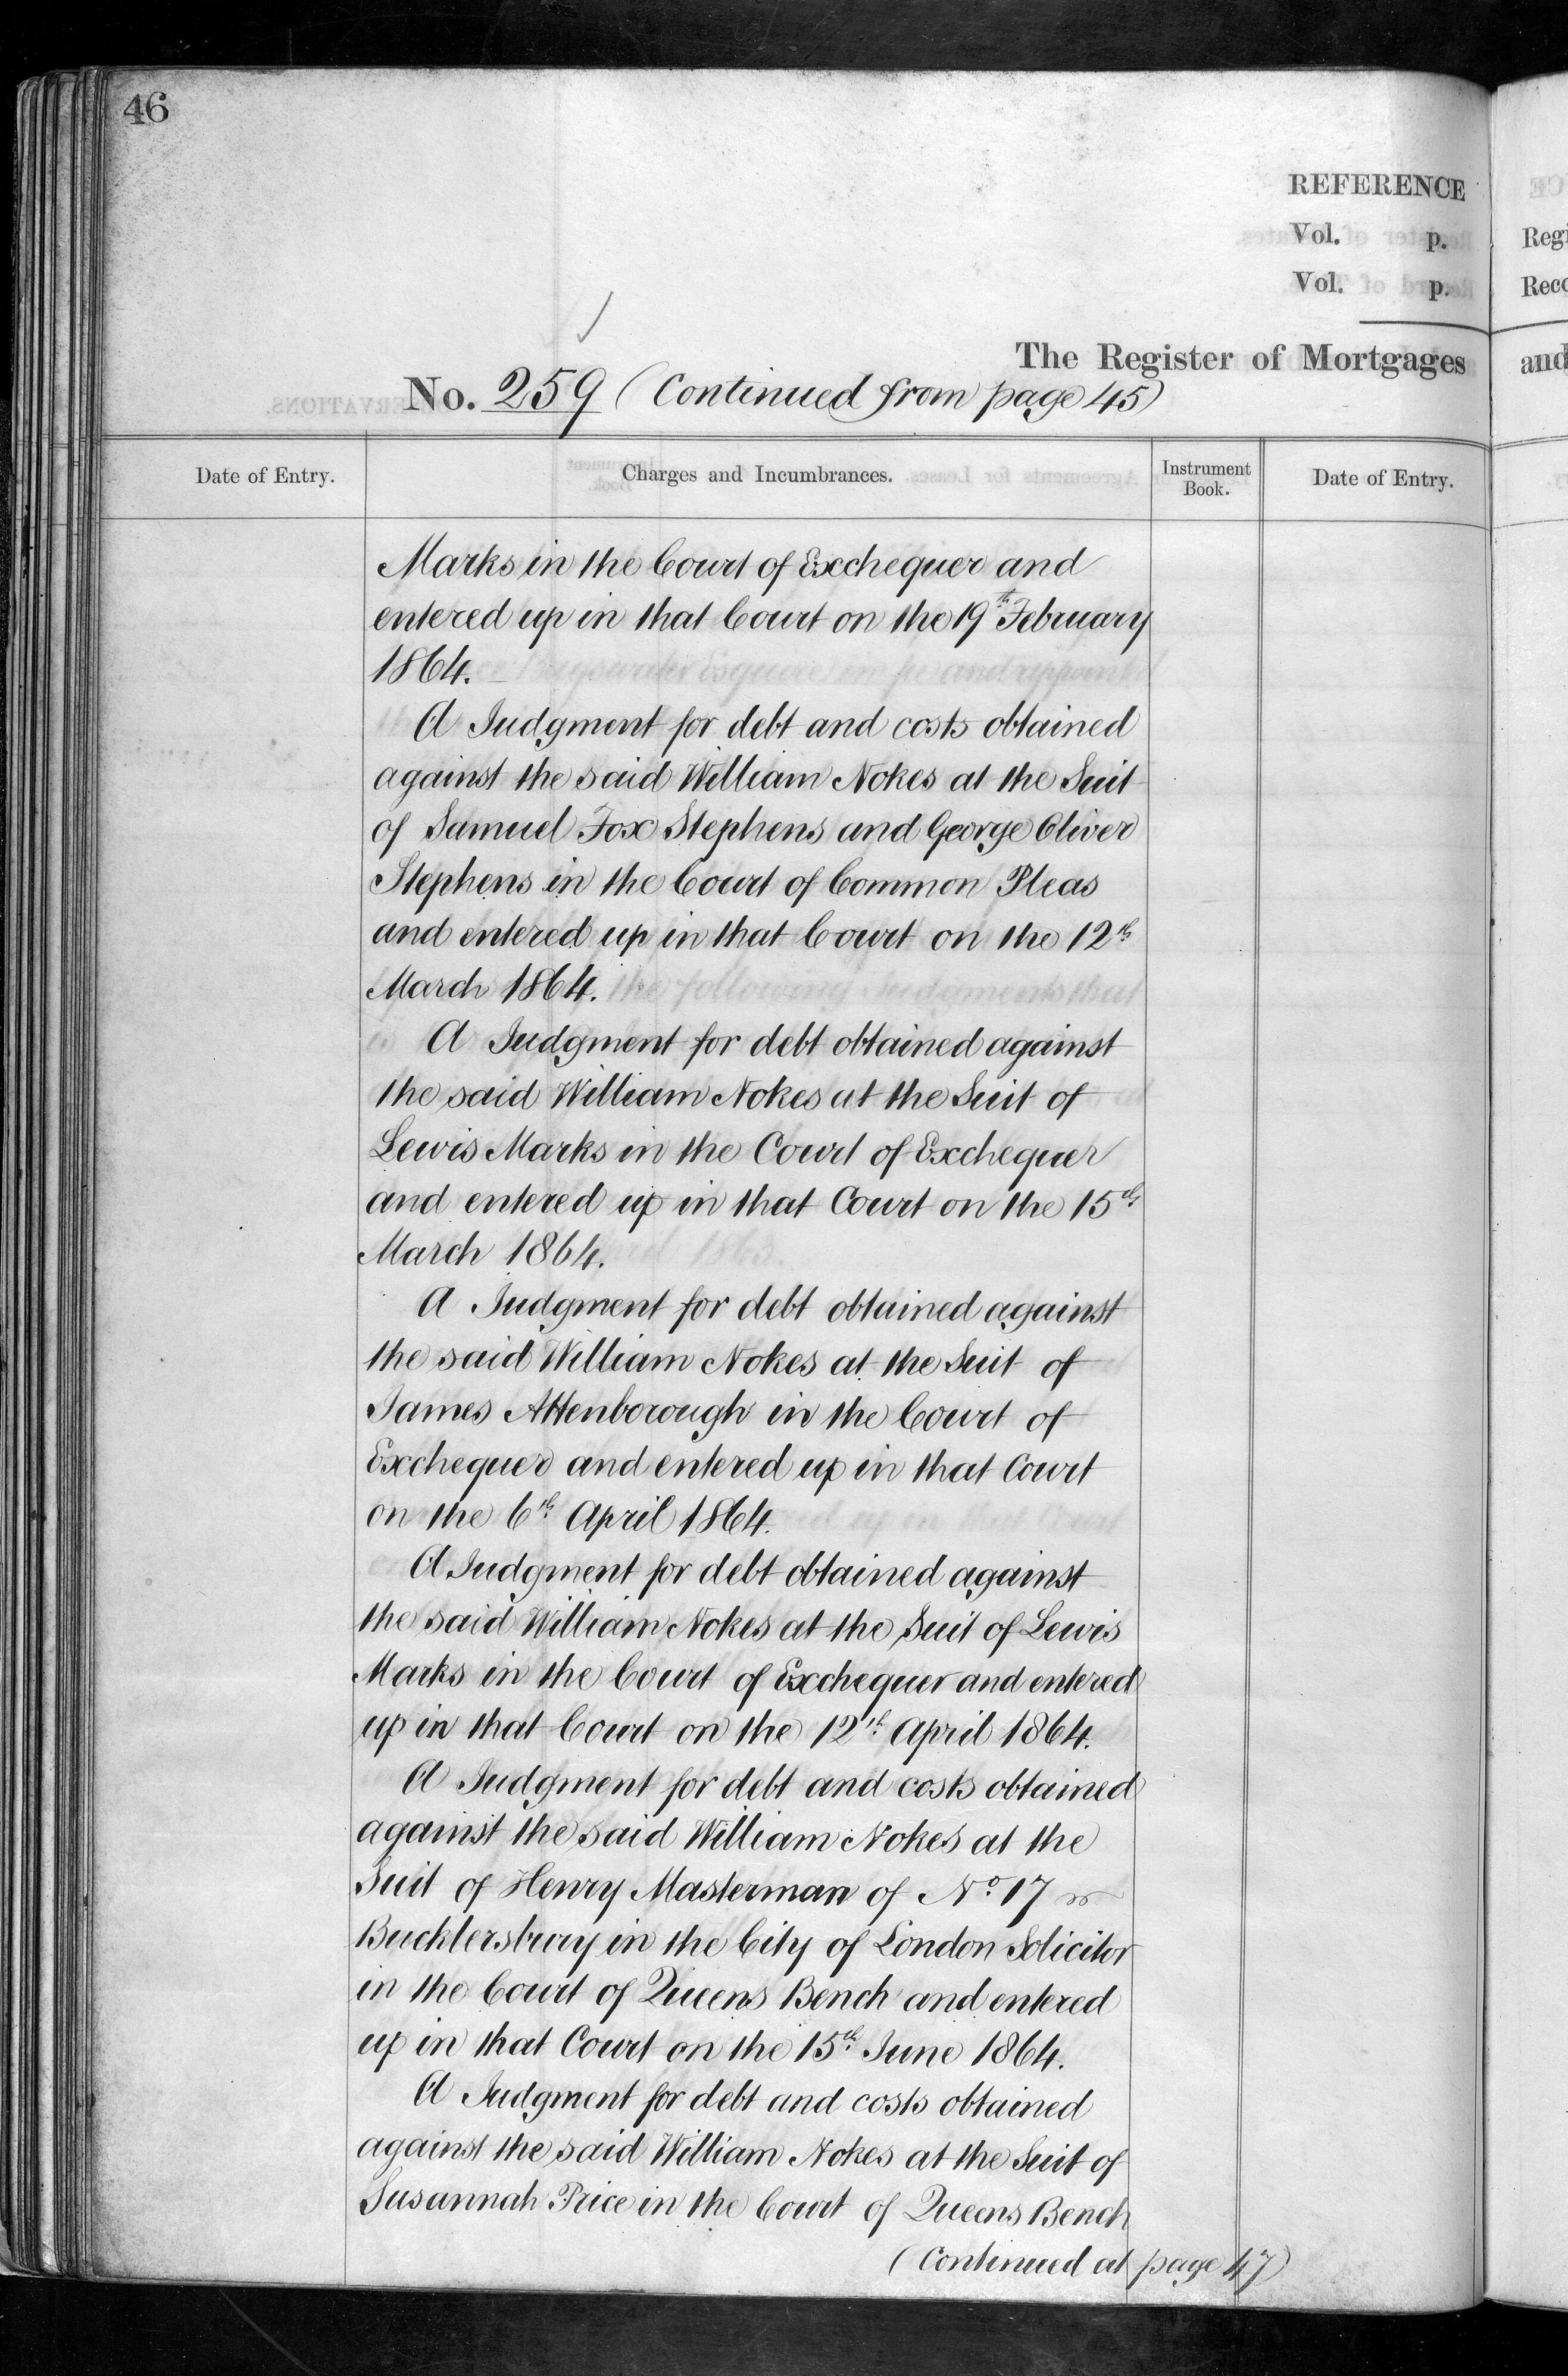 46
REFERENCE
Vol. p.
Vol. p.
The Register of Mortgages
No. 259 (Continued from page 45)
Date of Entry.
Charges and Incumbrances.
Instrument
Book.
Date of Entry.
Marks in the Court of Exchequer and
entered up in that Court on the 19th February
1864.
A Judgment for debt and costs obtained
against the said William Nokes at the Suit
of Samuel Fox Stephens and George Oliver
Stephens in the Court of Common Pleas
and entered up in that Court on the 12th
March 1864.
A Judgment for debt obtained against
the said William Nokes at the Suit of
Lewis Marks in the Court of Exchequer
and entered up in that Court on the 15th
March 1864.
A Judgment for debt obtained against
the said William Nokes at the Suit of
James Attenborough in the Court of
Exchequer and entered up in that Court
on the 6th April 1864.
A Judgment for debt obtained against
the said William Nokes at the Suit of Lewis
Marks in the Court of Exchequer and entered
up in that Court on the 12th April 1864.
A Judgment for debt and costs obtained
against the said William Nokes at the
Suit of Henry Masterman of No. 17
Bucklersbury in the City of London Solicitor
in the Court of Queens Bench and entered
up in that Court on the 15th June 1864.
A Judgment for debt and costs obtained
against the said William Nokes at the Suit of
Susannah Price in the Court of Queens Bench
(Continued at page 47)
Regi
Reco
and